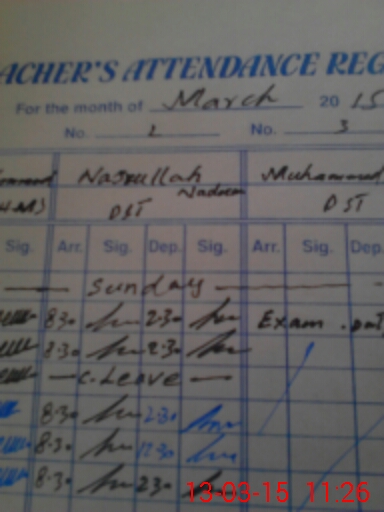 ACHER'S ATTENDANCE REG
For the month of March 2015
No. 2 No. 3
Nasrullah Muhammad
Nadeem
DST DST
Sig. Arr. Sig. Dep. Sig. Arr. Sig. Dep.
Sunday
8.30 2.30 Exam
8.30 2.30
C. Leave
8.30 2.30
8.30 12.30
8.30 2.30
13-03-15 11:26